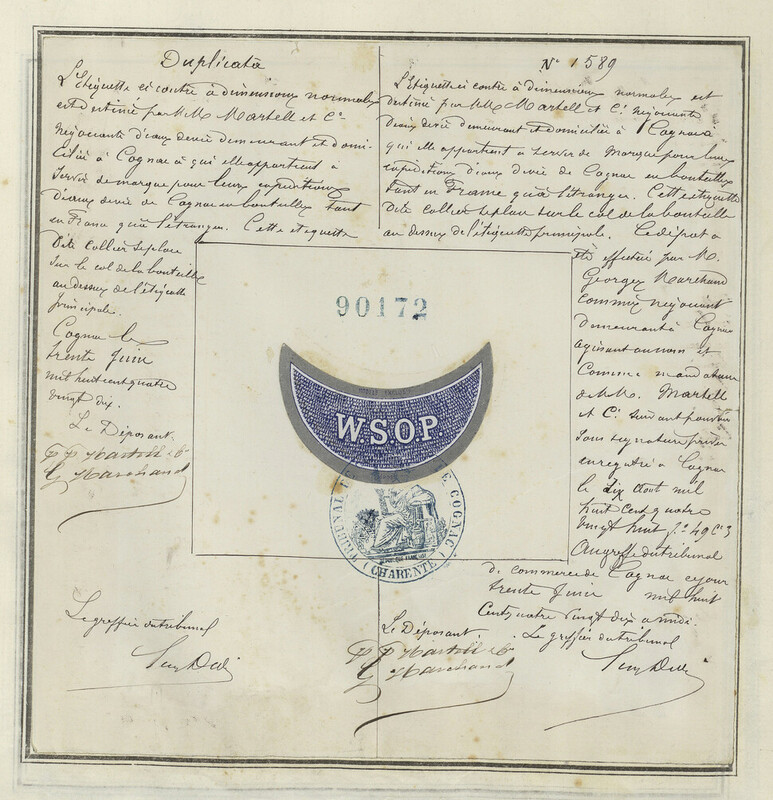 Duplicata
L'étiquette ci contre à dimensions normales
est destinée par M.M. Martell et Cie
négociants d'eaux de vie demeurant et domi-
ciliés à Cognac à qui elle appartient à
servir de marque pour leurs expéditions
d'eaux de vie de Cognac en bouteilles tant
en France qu'à l'étranger. Cette étiquette
dite collier se place
sur le col de la bouteille
au dessus de l'étiquette
principale.
Cognac le
trente Juin
mil huit cent quatre
vingt dix.
Le Déposant.
pp Martell & Co
G Marchand
Le greffier du tribunal
No 1589
L'étiquette ci contre à dimensions normales est
destinée par M.M. Martell et Cie négociants
d'eaux de vie demeurant et domiciliés à Cognac à
qui elle appartient à servir de marque pour leurs
expéditions d'eaux de vie de Cognac en bouteilles
tant en France qu'à l'étranger. Cette étiquette
dite collier se place sur le col de la bouteille
au dessus de l'étiquette principale. Le dépôt a
été effectué par M.
Georges Marchand
commis négociant
demeurant à Cognac
agissant au nom et
comme mandataire
de M.M. Martell
et Cie suivant pouvoir
sous signature privée
enregistré à Cognac
le dix Août mil
huit cent quatre
vingt huit fo 49 co 3
Au greffe du tribunal
de commerce de Cognac ce jour
trente Juin mil huit
cent quatre vingt dix à midi.
Le Déposant.
pp Martell & Co
G Marchand
Le greffier du tribunal
90172
W.S.O.P.
TRIBUNAL DE COMMERCE DE COGNAC
(CHARENTE)